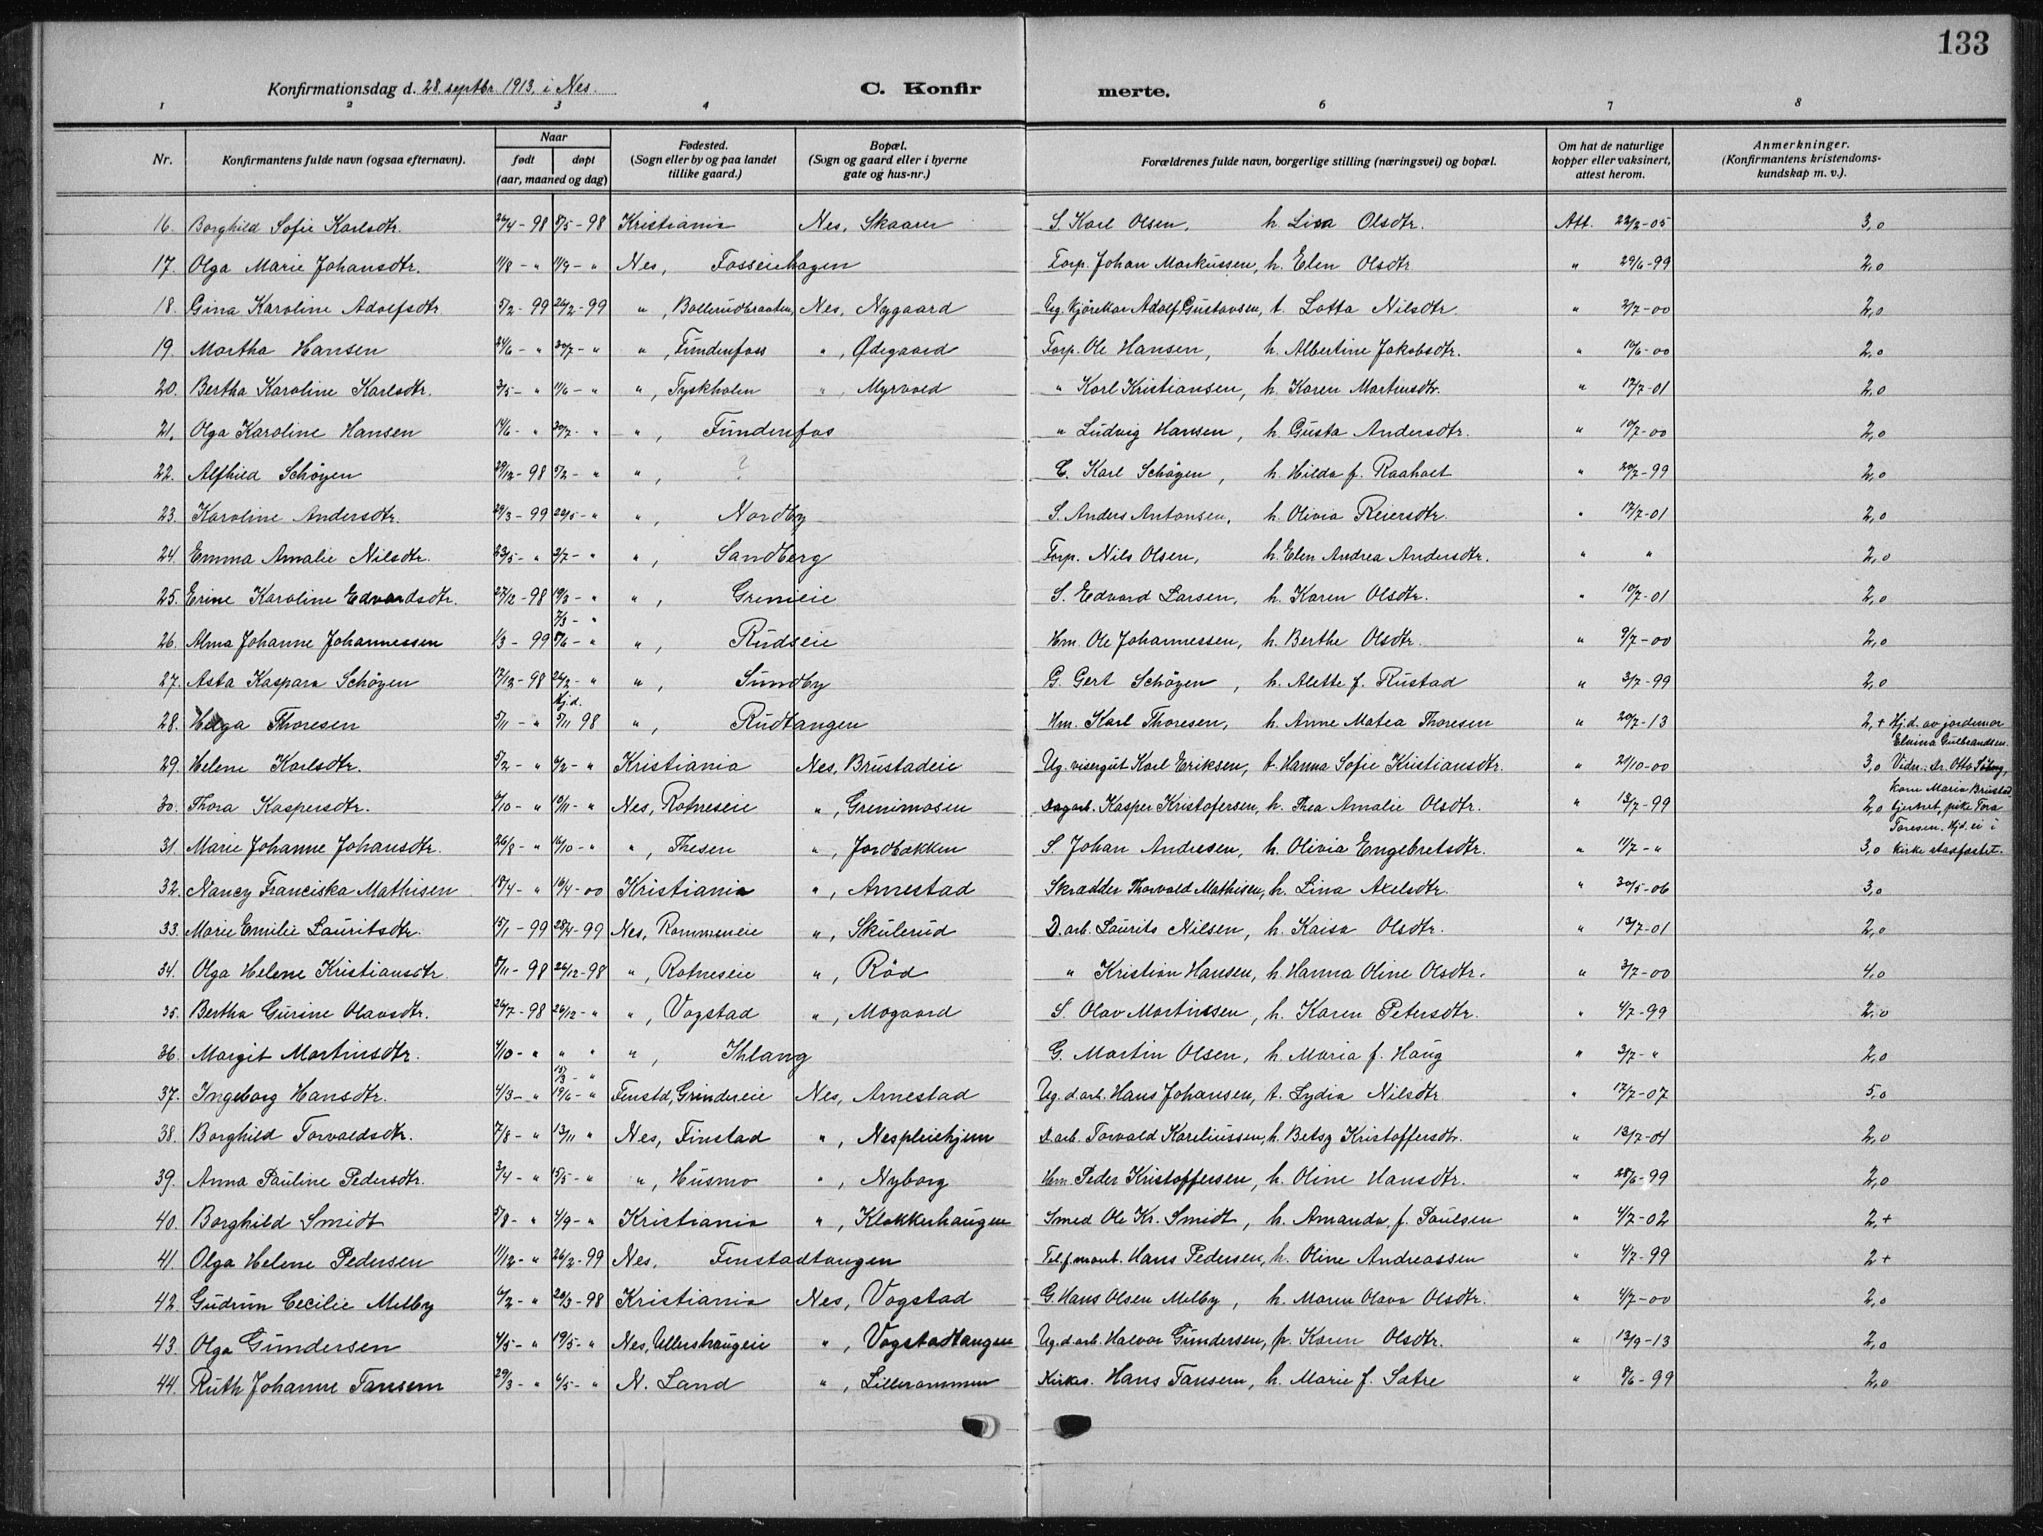 133
Konfirmationsdag d. 28. septbr. 1913, i Nes.
C. Konfirmerte.
1 2 3 4 6 7 8
Nr. Konfirmantens fulde navn (ogsaa efternavn). Naar født døpt (aar, maaned og dag) Fødested. (Sogn eller by og paa landet tillike gaard.) Bopæl. (Sogn og gaard eller i byerne gate og hus-nr.) Forældrenes fulde navn, borgerlige stilling (næringsvei) og bopæl. Om hat de naturlige kopper eller vaksinert, attest herom. Anmerkninger. (Konfirmantens kristendomskundskap m. v.).
16. Borghild Sofie Karlsdtr. 26/4-98 8/5-98 Kristiania Nes, Skaarer S. Karl Olsen, h. Lina Olsdtr. Att. 22/2-05 3,0
17. Olga Marie Johansdtr. 11/8-" 11/9-" Nes, Fosseiehagen Torp. Johan Markussen, h. Elen Olsdtr " 29/6-99 2,0
18. Gina Karoline Adolfsdtr 5/2-99 26/2-99 ", Bollerudbraaten, Nes, Nygaard Ug. Kjørekar Adolf Gustavsen, t. Lotta Nilsdtr. " 2/7-00 2,0
19. Martha Hansen 24/6-" 30/7-" ", Fundenfoss ", Ødegaard Torp. Ole Hansen, h. Albertine Jakobsdtr. " 10/6-00 2,0
20. Bertha Karoline Karlsdtr. 3/5-" 11/6-" ", Tyskholen ", Myrvold " Karl Kristiansen, h. Karen Martinsdtr. " 17/7-01 2,0
21. Olga Karoline Hansen 14/6-" 30/7-" ", Fundenfos " Ludvig Hansen, h. Gusta Andersdtr. " 10/7-00 2,0
22. Alfhild Schøyen 29/12-98 5/2-" ", ? G. Karl Schøyen, h. Hilda f. Raaholt " 20/7-99 2,0
23. Karoline Andersdtr. 29/3-99 22/5-" ", Nordby S. Anders Antonsen, h. Olivia Reiersdtr. " 17/7-01 2,0
24. Emma Amalie Nilsdtr. 23/5-" 2/7-" ", Sandberg Torp. Nils Olsen, h. Elen Andrea Andersdtr. " " 2,0
25. Erine Karoline Edvardsdtr. 27/12-98 19/3-" ", Greneie S. Edvard Larsen, h. Karen Olsdtr. " 10/7-01 2,0
7/3-"
26. Alma Johanne Johannessen 1/3-99 8/6-" ", Rudseie Hm. Ole Johannessen, h. Berthe Olsdtr. " 9/7-00 2,0
27. Asta Kaspara Schøyen 17/12-98 24/2-" ", Sundby G. Gert Schøyen, h. Alette f. Rustad " 3/7-99 2,0
Hj.d.
28. Helga Thoresen 5/11-" 5/11 98 ", Rudtangen Hm. Karl Thoresen, h. Anne Matea Thoresen " 20/7-13 2,+ Hj.d. av jordemor
Elvina Gulbrandsen.
29. Helene Karlsdtr. 5/2-" 6/2-" Kristiania Nes, Brustadeie Ug. visergut Karl Eriksen, t. Hanna Sofie Kristiansdtr. " 21/10-00 3,0 Vidn. dr. Otto
kone Maria Brustad
30. Thora Kaspersdtr. 6/10-" 10/11-" Nes, Rotneseie ", Grenimosen Dagarb. Kasper Kristofersen, h. Thea Amalie Olsdtr. " 13/7-99 2,0 pike Tora
Toresen. Hj.d. ei i
31. Marie Johanne Johansdtr. 26/8-" 16/10-" ", Thesen ", Jordbakken S. Johan Andresen, h. Olivia Engebretsdtr. " 11/7-" 3,0 kirke stadfæstet.
32. Nancy Franciska Mathisen 18/4-" 16/4-00 Kristiania ", Arnestad Skradder Thorvald Mathisen, h. Lina Axelsdtr. " 30/5-06 3,0
33. Marie Emilie Lauritsdtr. 15/1-99 28/4-99 Nes, Rommeneie ", Skulerud D. arb. Laurits Nilsen, h. Kaisa Olsdtr. " 13/7-01 2,0
34. Olga Helene Kristiansdtr. 8/11-98 26/12-98 ", Rotneseie ", Rød " Kristian Hansen, h. Hanna Oline Olsdtr. " 3/7-00 4,0
35. Bertha Gurine Olavsdtr. 26/7-98 26/12-" ", Vogstad ", Mogaard S. Olav Martinssen, h. Karen Petersdtr. " 4/7-99 2,0
36. Margit Martinsdtr. 4/10-" " " ", Ihlang G. Martin Olsen, h. Maria f. Haug " 3/7-" 2,0
15/3-"
37. Ingeborg Hansdtr. 4/3-" 19/6-" Fenstd, Grindereie Nes, Arnestad Ug. d.arb. Hans Johansen, t. Lydia Nilsdtr. " 17/7-07 5,0
38. Borghild Torvaldsdtr. 7/8-" 13/11 " Nes, Finstad ", Nespleiehjem D.arb. Torvald Kareliussen, h. Betsy Kristoffersdtr. " 13/7-04 2,0
39. Anna Pauline Pedersdtr. 3/4-" 15/5-" ", Husmo ", Nyborg Hm. Peder Kristoffersen, h. Oline Hansdtr. " 28/6-99 2,0
40. Borghild Smidt 5/8-" 4/9-" Kristiania ", Klokkerhaugen Smed Ole Kr. Smidt, h. Amanda f. Paulsen " 4/7-02 2,+
41. Olga Helene Pedersen 11/12-" 26/2-99 Nes, Fenstadtangen Telf.mont. Hans Pedersen, h. Oline Andreassen " 4/7-99 2+
42. Gudrun Cecilie Melby 6/2-" 20/3-98 Kristiania Nes, Vogstad G. Hans Olsen Melby, h. Maren Olava Olsdtr. " 4/7-00 2,0
43. Olga Gundersen 4/5-" 19/5-" Nes, Ullershaugeie ", Vogstadtangen Ug. d.arb. Halvor Gundersen, p. Karen Olsdtr. " 13/9-13 2,0
44. Ruth Johanne Tansem 29/3-" 6/5-" N. Land ", Lillerommen Kirkes. Hans Tansem, h. Marie f. Satre " 8/6-99 2,0